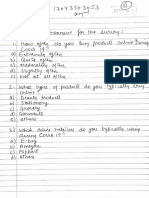 Questionnaire for the survey:
1) How often do you buy product online during
Covid 19?
a) Extremely often
b) Quite often
c) Moderately often
d) Slightly often
e) Not at all often
2) What type of product do you typically buy
online?
a) Beauty product
b) Stationary
c) Grocery
d) Garments
e) others
3) Which online retailer do you typically using
during Covid 19?
a) E-bay
b) Amazon
c) Flipkart
d) others